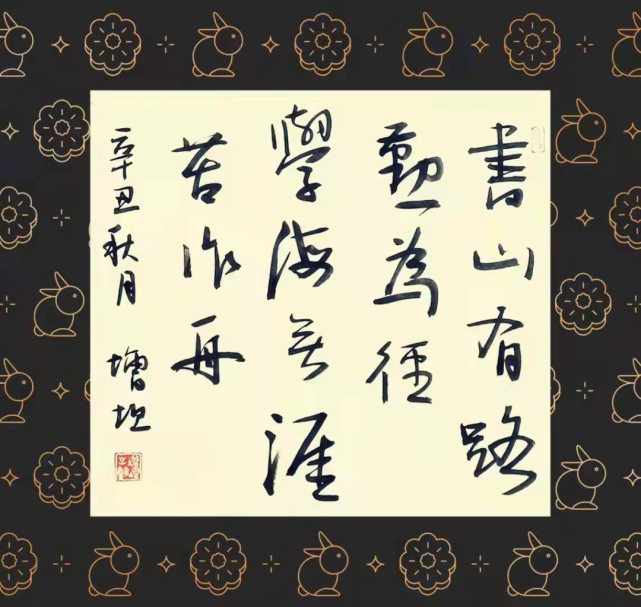 書山有路
勤為徑
學海無涯
苦作舟
辛丑秋月
增坦